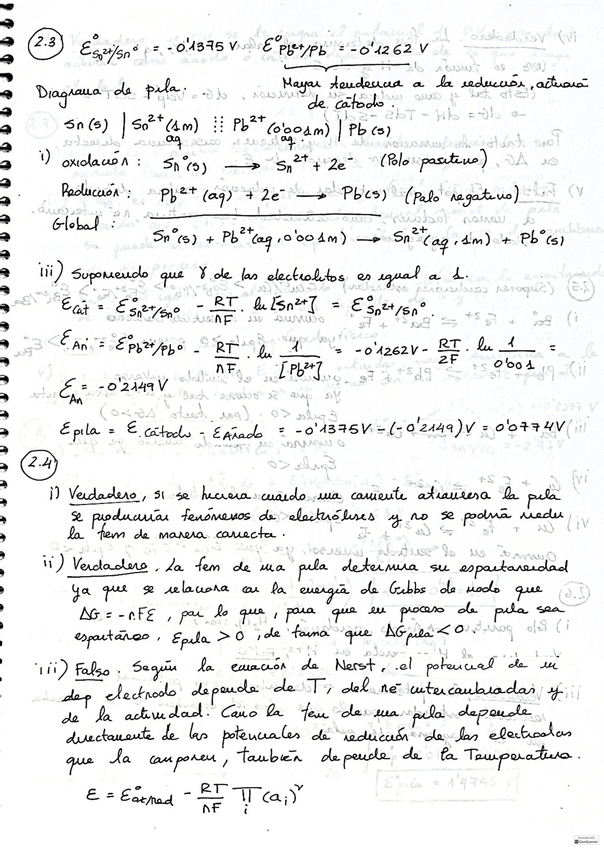 2.3 Ɛ°Sn²⁺/Sn° = -0'1375 V Ɛ°Pb²⁺/Pb = -0'1262 V
Diagrama de pila: Mayor tendencia a la reducción, actuará
de cátodo.
Sn(s) | Sn²⁺(1m) ⫶⫶ Pb²⁺(0'001m) | Pb(s)
aq. aq.
i) oxidación: Sn°(s) → Sn²⁺ + 2e⁻ (Polo positivo)
Reducción: Pb²⁺(aq) + 2e⁻ → Pb(s) (Polo negativo)
Global:
Sn°(s) + Pb²⁺(aq, 0'001m) → Sn²⁺(aq, 1m) + Pb°(s)
iii) Suponiendo que γ de los electrolitos es igual a 1.
Ɛcat = Ɛ°Sn²⁺/Sn° - RT/nF · ln [Sn²⁺] = Ɛ°Sn²⁺/Sn°.
ƐAn = Ɛ°Pb²⁺/Pb° - RT/nF · ln 1/[Pb²⁺] = -0'1262V - RT/2F · ln 1/0'001 =
ƐAn = -0'2149 V
Ɛpila = Ɛ.cátodo - ƐÁnodo = -0'1375V - (-0'2149)V = 0'0774V
2.4
i) Verdadero, si se hiciera cuando una corriente atraviesa la pila
se producirían fenómenos de electrólisis y no se podría medir
la fem de manera correcta.
ii) Verdadero. La fem de una pila determina su espontaneidad
ya que se relaciona con la energía de Gibbs de modo que
ΔG = -nFƐ, por lo que, para que un proceso de pila sea
espontáneo, Ɛpila > 0, de forma que ΔGpila < 0.
iii) Falso. Según la ecuación de Nerst, el potencial de un
dep electrodo depende de T, del ne⁻ intercambiadas y
de la actividad. Como la fem de una pila depende
directamente de los potenciales de reducción de los electrodos
que la componen, también depende de la Temperatura.
Ɛ = Ɛ°ox/red - RT/nF ∏i (ai)^ν